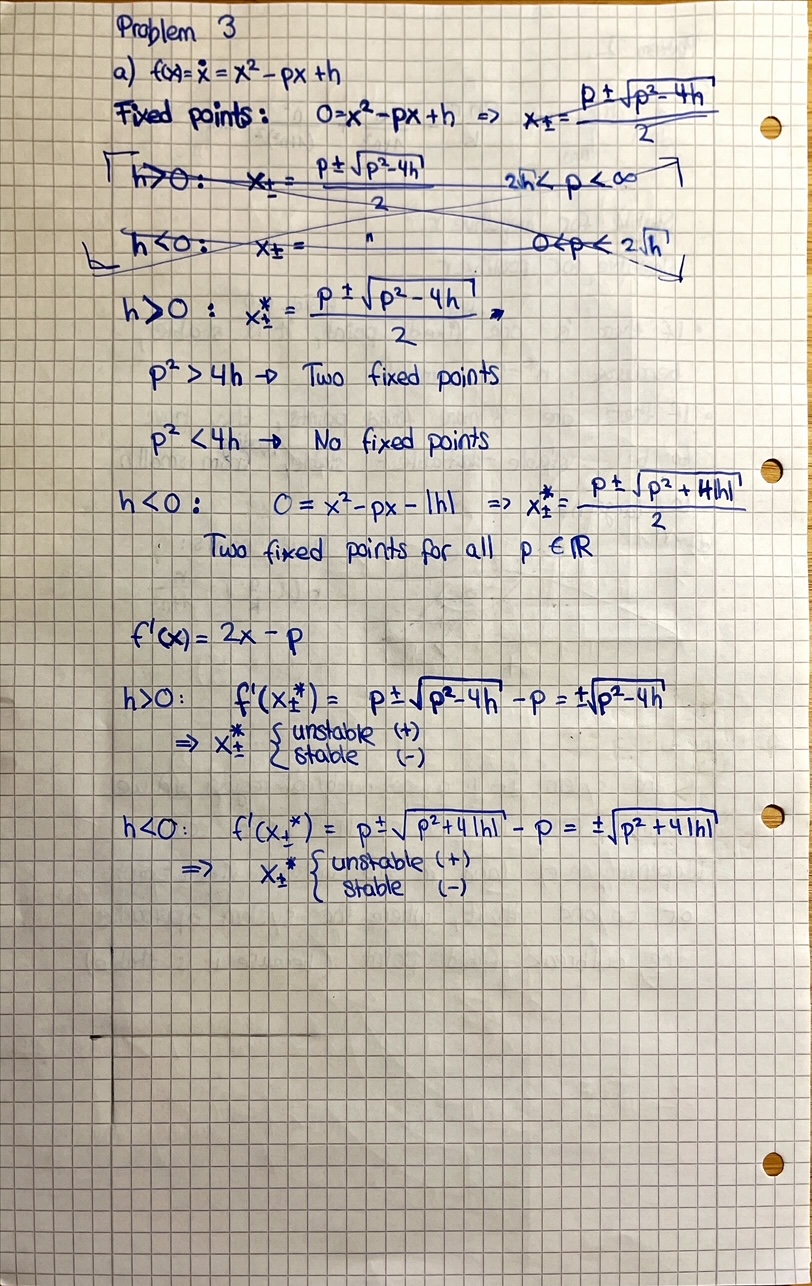 Problem 3
a) f(x) = ẋ = x² - px + h
Fixed points: 0 = x² - px + h => x± = (p ± √(p² - 4h))/2
h>0: x± = (p ± √(p² - 4h))/2 2√h < p < ∞
h<0: x± = " 0 < p < 2√h
h>0: x±* = (p ± √(p² - 4h))/2
p² > 4h → Two fixed points
p² < 4h → No fixed points
h<0: 0 = x² - px - |h| => x±* = (p ± √(p² + 4|h|))/2
Two fixed points for all p ∈ ℝ
f'(x) = 2x - p
h>0: f'(x±*) = p ± √(p² - 4h) - p = ±√(p² - 4h)
=> x±* { unstable (+)
stable (-)
h<0: f'(x±*) = p ± √(p² + 4|h|) - p = ±√(p² + 4|h|)
=> x±* { unstable (+)
stable (-)